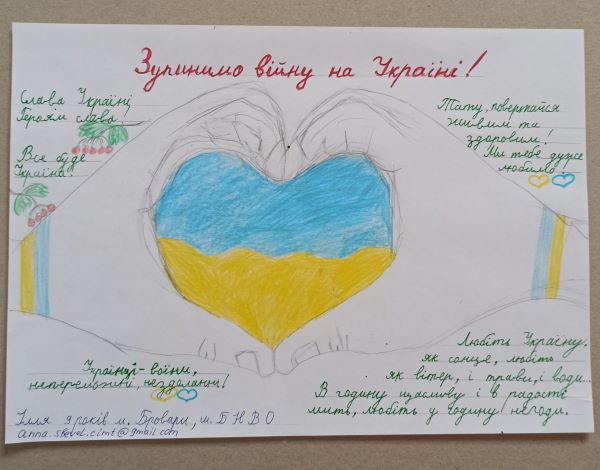 Зупинимо війну на Україні!
Слава Україні
Героям слава
Все буде
Україна!
Тату, повертайся
живим та
здоровим!
Ми тебе дуже
любимо!
Українці - воїни,
непереможні, нездоланні!
Любіть Україну,
як сонце, любіть
як вітер, і трави, і води...
В годину щасливу і в радості
мить, любіть у годину негоди.
Ілля 9 років м. Бровари, ш. Б Н В О